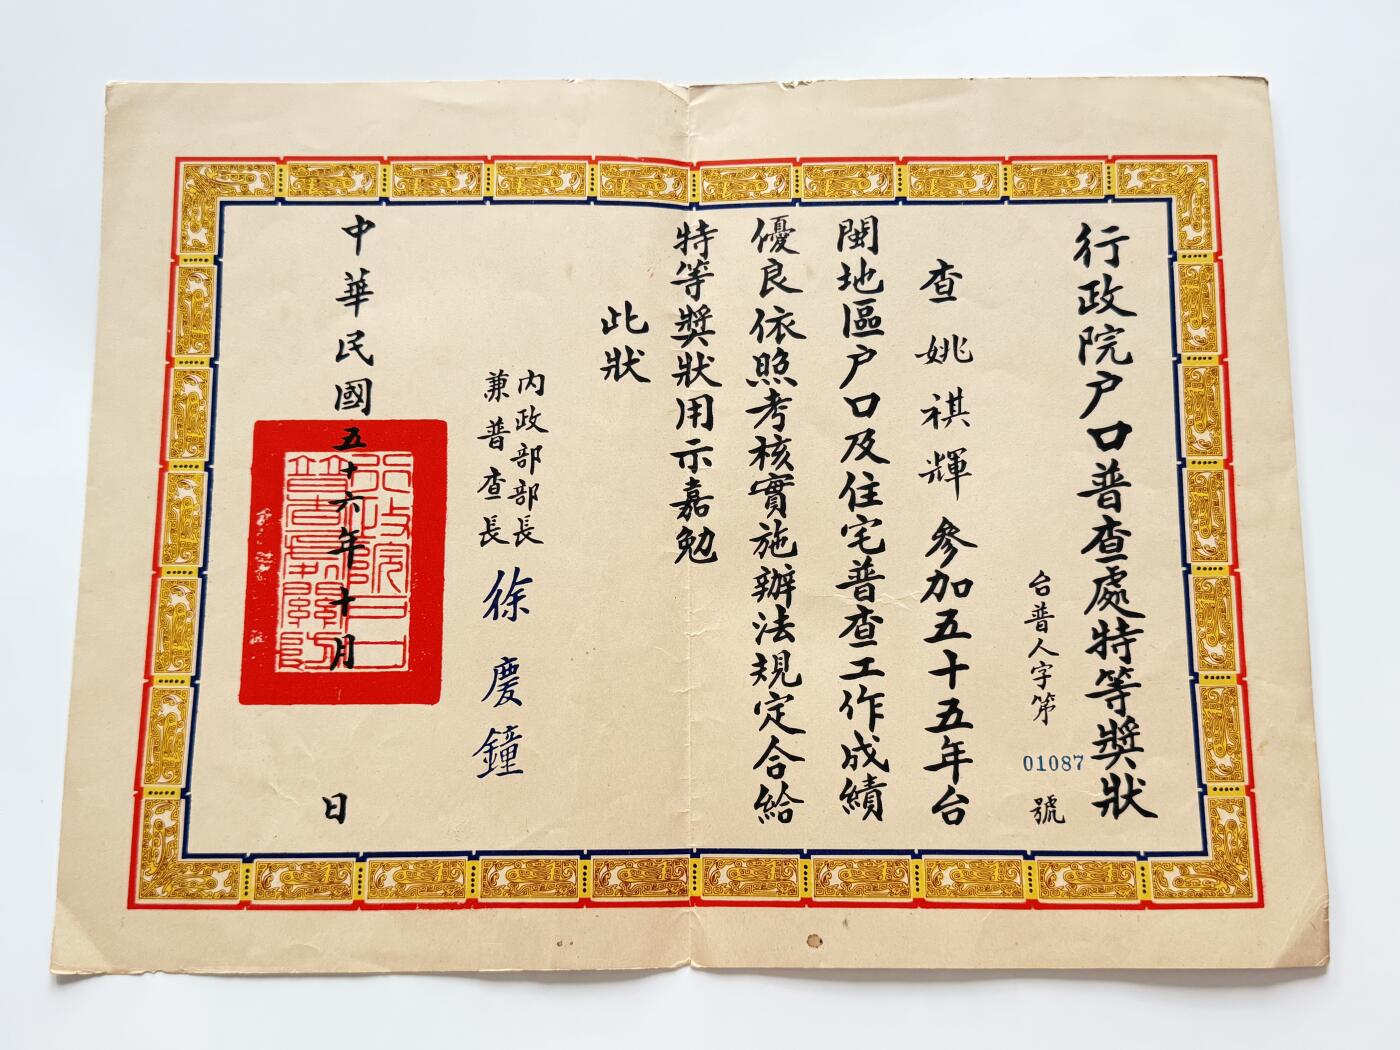 行政院戶口普查處特等獎狀
台普人字第01087號
查姚祺輝參加五十五年台
閩地區戶口及住宅普查工作成績
優良依照考核實施辦法規定合給
特等獎狀用示嘉勉
此狀
內政部部長
兼普查長
徐慶鐘
中華民國五十六年十月日
行政院戶口
普查處關防